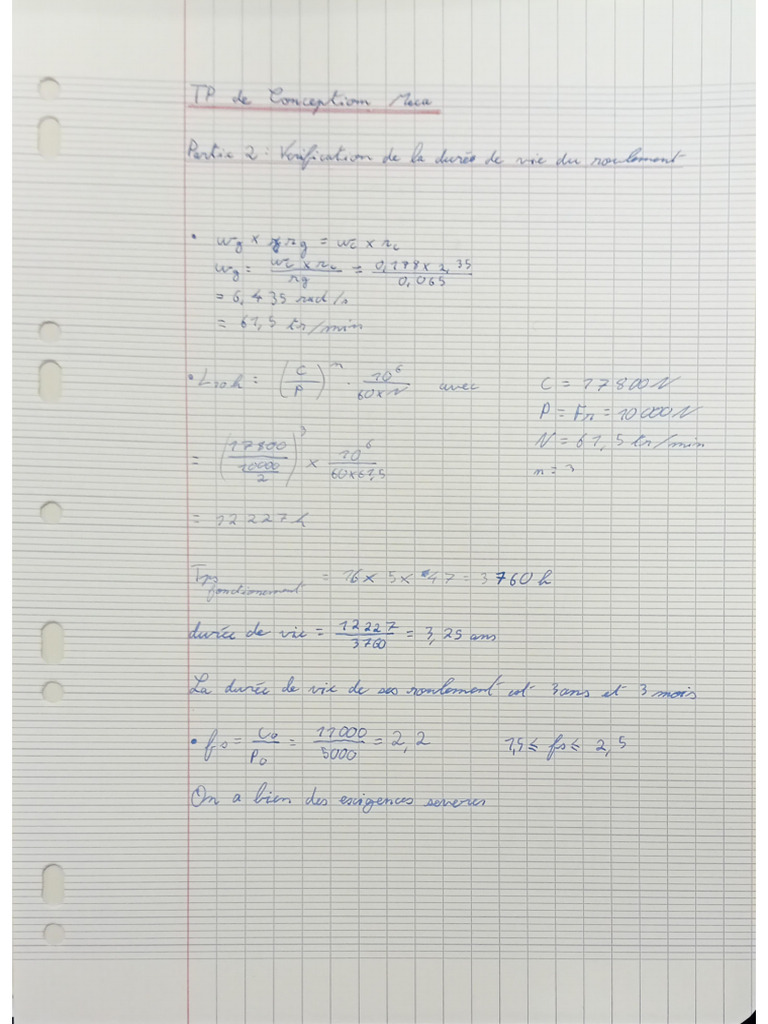 TP de Conception Meca
Partie 2 : Vérification de la durée de vie du roulement
• wg x rg = wc x rc
wg = wc x rc / rg = 0,178 x 2,35 / 0,065
= 6,435 rad/s
= 61,5 tr/min
• L10h = (C/P)^n . 10^6 / 60xN avec C = 17800N
P = Fr = 10000N
N = 61,5 tr/min
n = 3
= (17800 / (10000/2))^3 x 10^6 / 60x61,5
= 12 227 h
Tps fonctionement = 16 x 5 x 47 = 3760 h
durée de vie = 12227 / 3760 = 3,25 ans
La durée de vie de ses roulement est 3 ans et 3 mois
• fs = C0 / P0 = 11000 / 5000 = 2,2 1,5 ≤ fs ≤ 2,5
On a bien des exigences severes